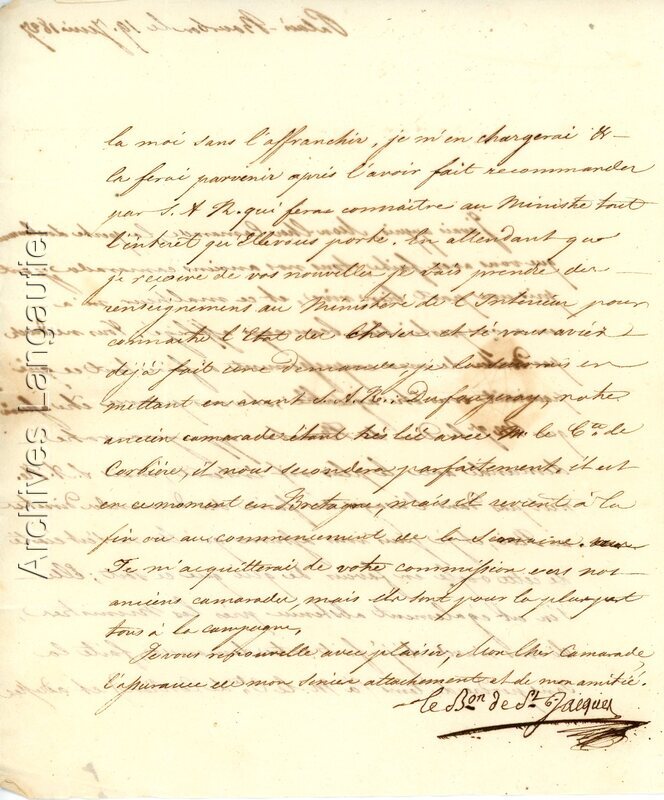 la moi sans l'affranchir, je m'en chargerai &
la ferai parvenir après l'avoir fait recommander
par S. A R. qui fera connaître au Ministre tout
l'interet qu'Elle vous porte. En attendant que
je reçoive de vos nouvelles je vais prendre des
renseignemens au Ministère de l'Interieur pour
connaître l'Etat des Choses et si vous aviez
déjà fait une demande, je
mettant en avant S. A. R.. Dufougeray, notre
ancien camarade étant très lié avec M. le Cte. de
Corbière, il nous secondera parfaitement, il est
en ce moment en Bretagne, mais il revient à la
fin ou au commencement de la Semaine.
Je m'acquitterai de votre commission vers nos
anciens camarades, mais ils sont pour la pluspart
tous à la campagne.
Je vous renouvelle avec plaisir, Mon Cher Camarade
l'assurance de mon sincere attachement et de mon amitié.
le Bon de St Jacques
Archives Langautier